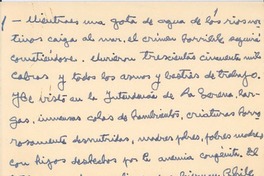 1 - Mientras una gota de agua de los ríos no
tivos caiga al mar, el crimen horrible seguirá
cometiéndose. Murieron trescientas cincuenta mil
cabras y todos los asnos y bestias de trabajo.
He visto en la Intendencia de La Serena, lar-
gas, inmensas colas de hambrientos, criaturas horro
rosamente desnutridas, madres pobres, pobres madres
con hijos deshechos por la anemia congénita. El